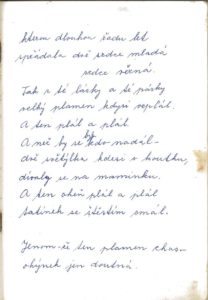 kterou dlouhou řadu let
spřádala dvě srdce mladá
srdce věrná.
Tak z té lásky a té pásky
velký plamen kdysi vzplál.
A ten plál a plál
A než by se kdo nadál -
dvě světýlka kdesi v koutku,
dívaly se na maminku.
A ten oheň plál a plál
tatínek se štěstím smál.
Jenom-že ten plamen chas-
ohýnek jen doutná.